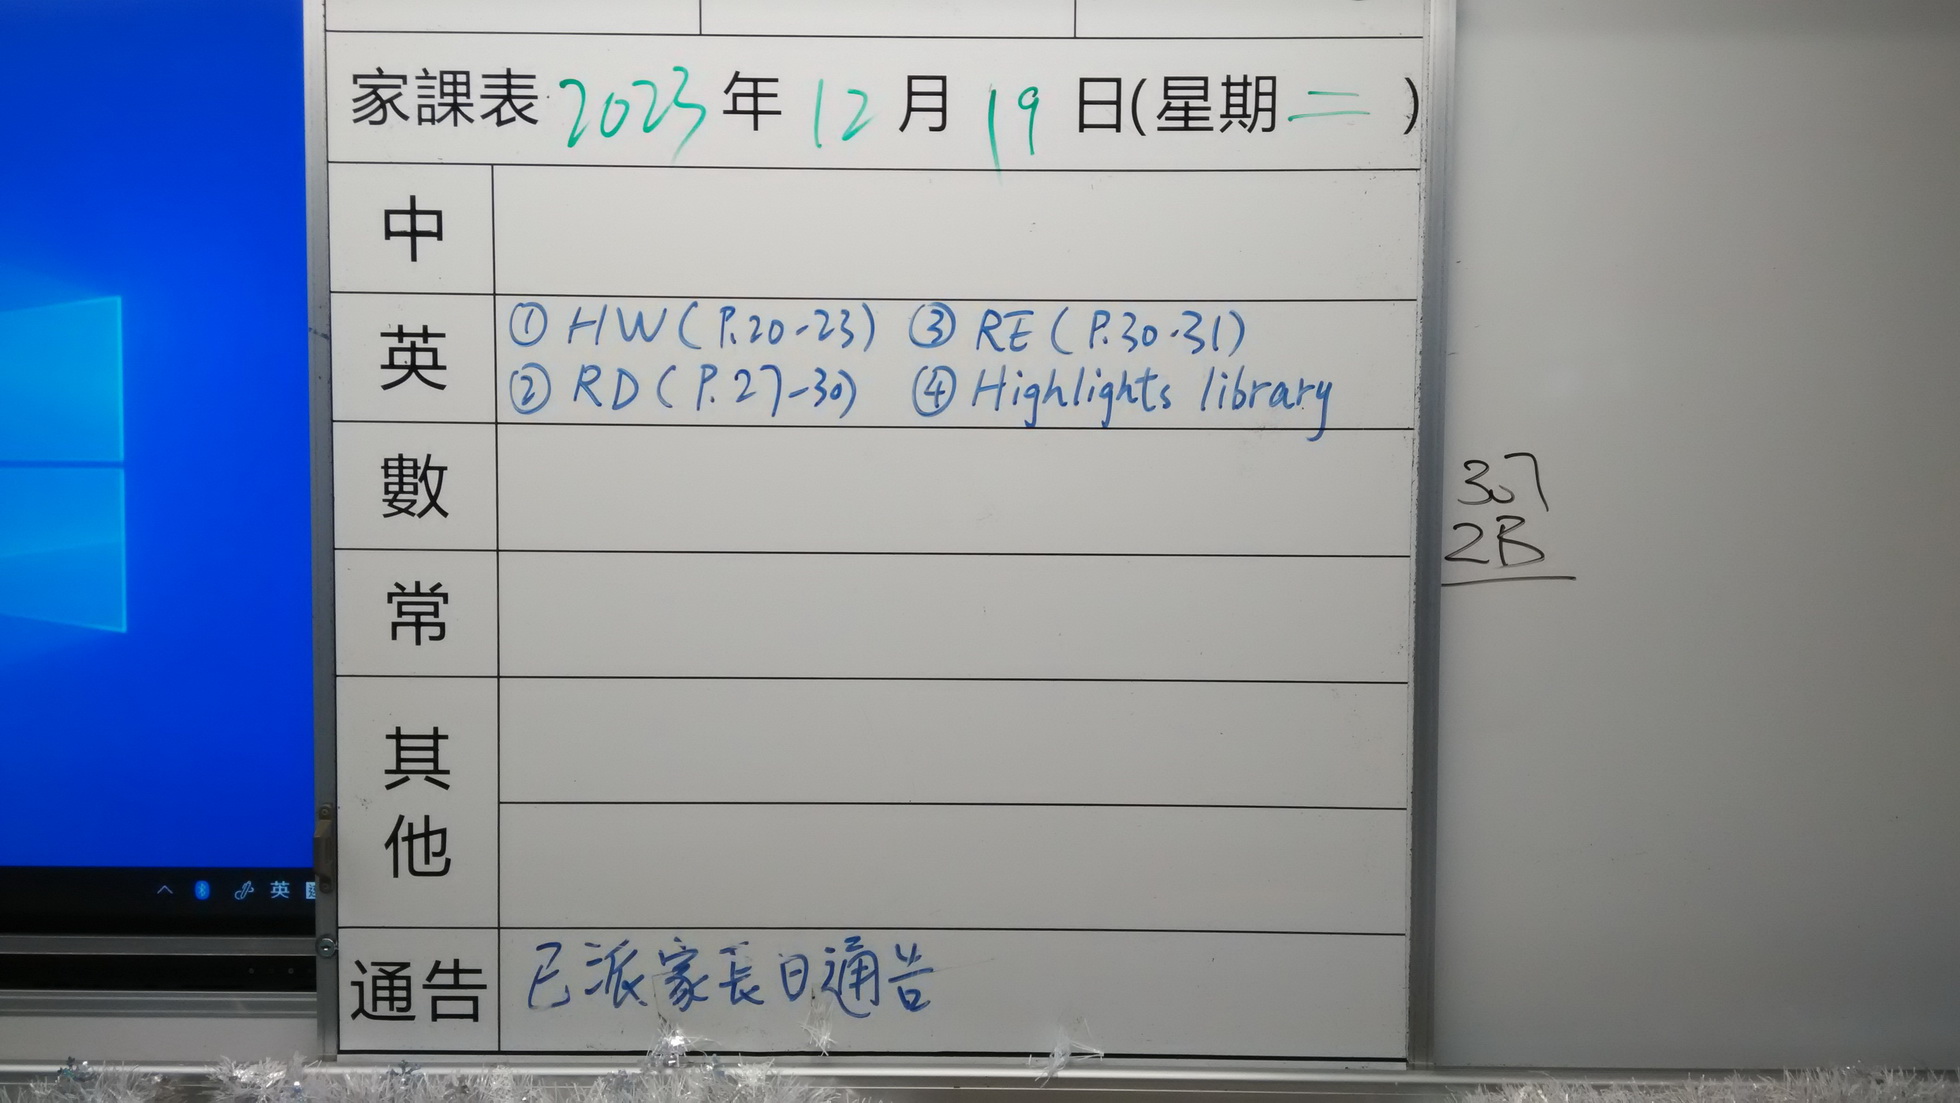 家課表 2023 年 12 月 19 日(星期二)
中
英
① HW (P.20-23) ③ RE (P.30-31)
② RD (P.27-30) ④ Highlights library
數
常
其他
通告 已派家長日通告
307
2B
英